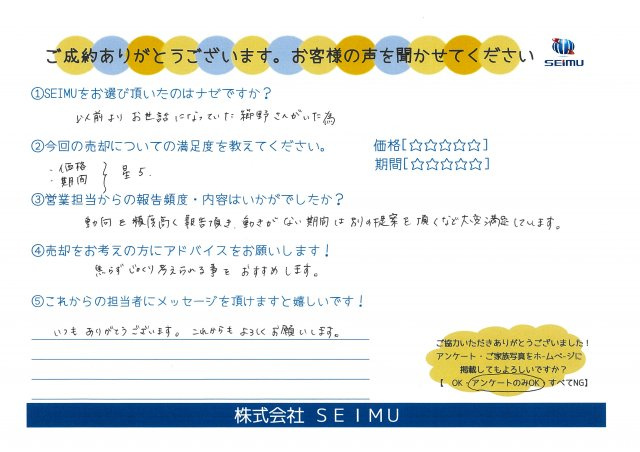 ご成約ありがとうございます。お客様の声を聞かせてください
SEIMU
①SEIMUをお選び頂いたのはナゼですか?
以前よりお世話になっていた 野さんがいた為
②今回の売却についての満足度を教えてください。
価格[☆☆☆☆☆]
期間[☆☆☆☆☆]
・価格
・期間
星5.
③営業担当からの報告頻度・内容はいかがでしたか?
動向を頻度高く報告頂き、動きがない期間は別の提案を頂くなど大変満足しています。
④売却をお考えの方にアドバイスをお願いします!
焦らずじっくり考えられる事をおすすめします。
⑤これからの担当者にメッセージを頂けますと嬉しいです!
いつもありがとうございます。これからもよろしくお願いします。
ご協力いただきありがとうございました!
アンケート・ご家族写真をホームページに
掲載してもよろしいですか?
【 OK・アンケートのみOK・すべてNG】
株式会社 SEIMU